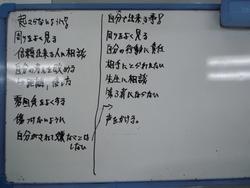 起こさないように?
周りをよく見る
信頼出来る人に相談
自分の
雰囲気をよくする
傷つけないように
自分がされて嫌なことは
しない
自分で出来る事?
周りをよく見る
自分の行動に責任
相手にとらわれない
先生に相談
第3者にならない
声をかける。